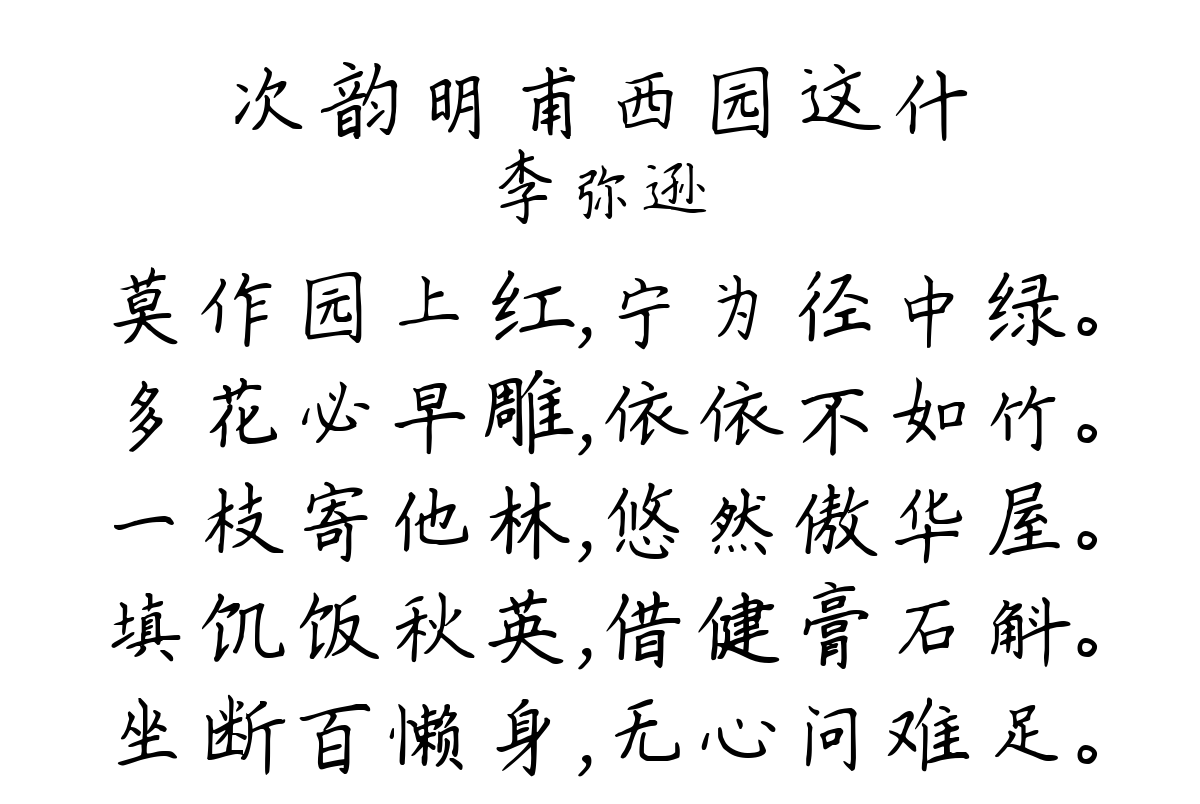 次韵明甫西园这什
李弥逊
莫作园上红,宁为径中绿。
多花必早雕,依依不如竹。
一枝寄他林,悠然傲华屋。
填饥饭秋英,借健膏石斛。
坐断百懒身,无心问难足。